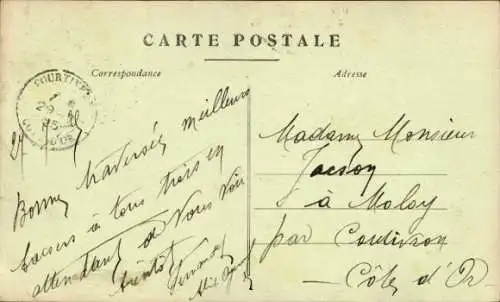 CARTE POSTALE
Correspondance
Adresse
COURTIVRON
29
CÔTE D'OR
27
Bonne traversée meilleurs
baisers à tous trois en
attendant de vous voir
bientôt
Fernand
Madame Monsieur
Jacson
à Moloy
par Courtivron
Côte d'Or